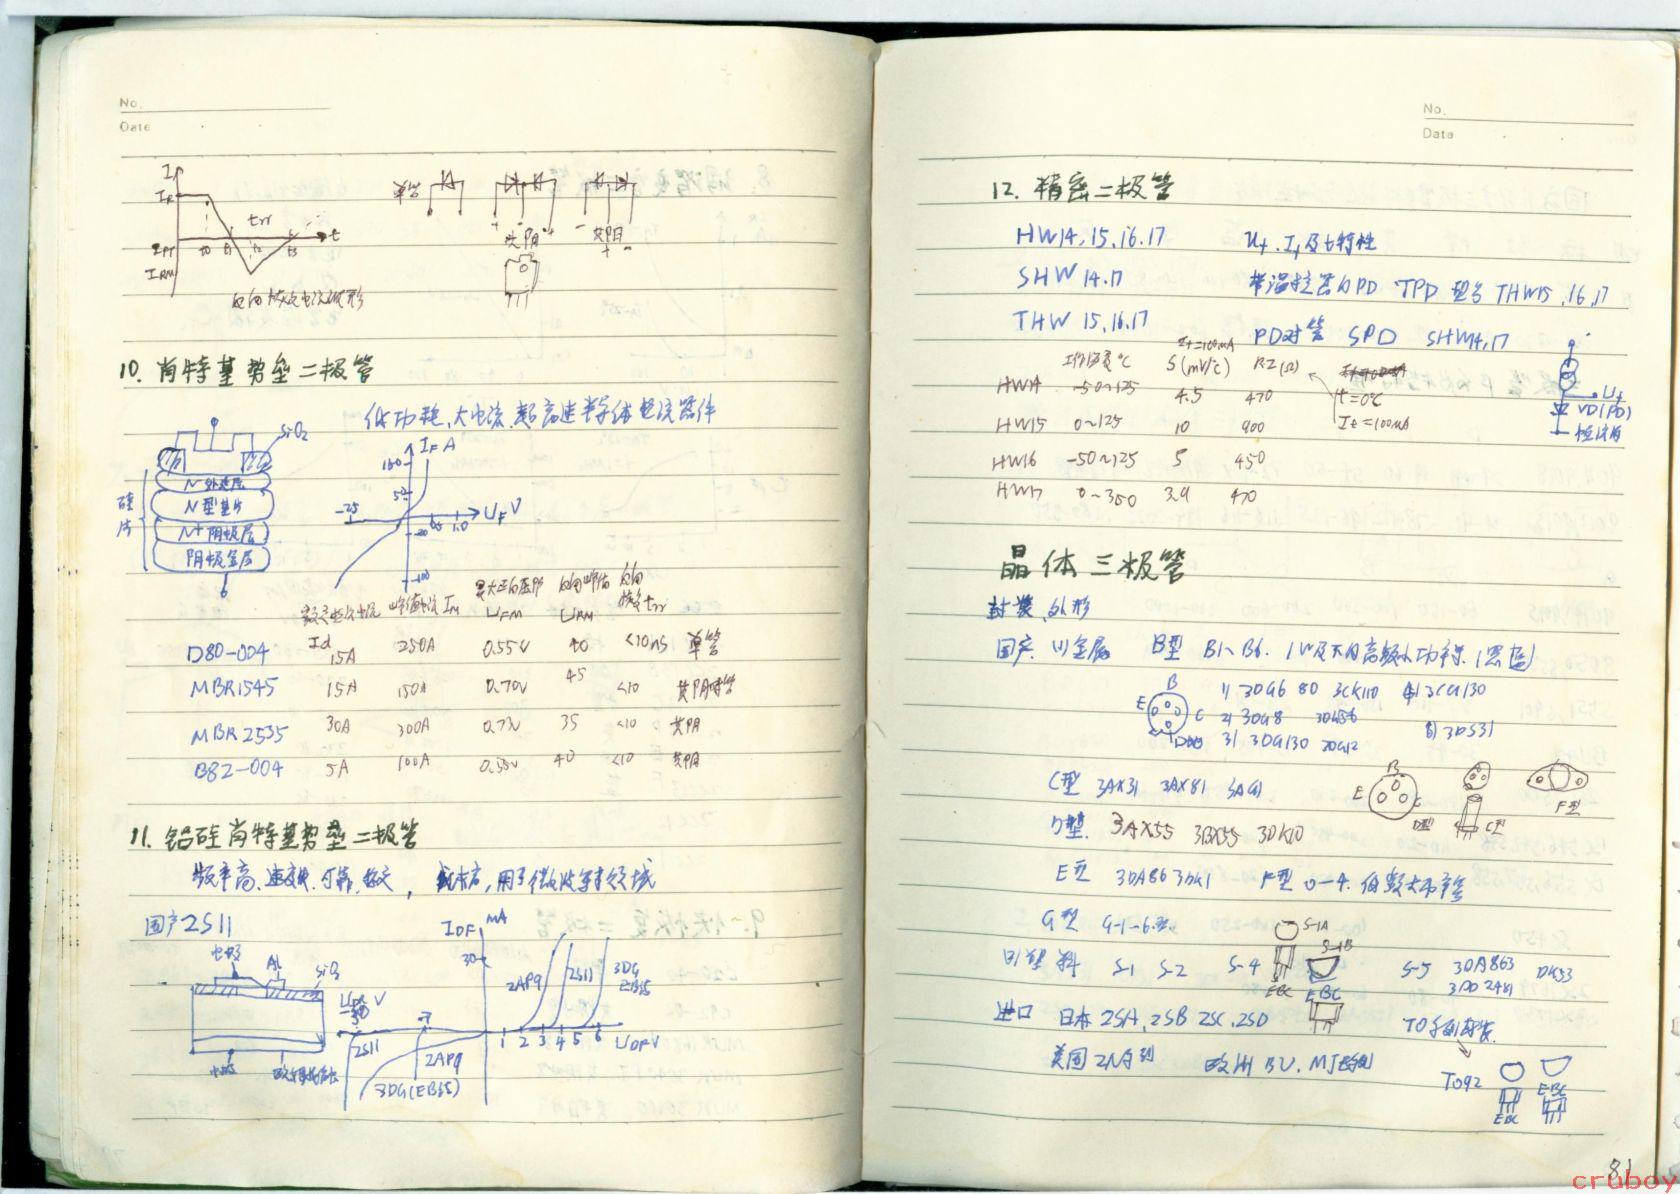 No.
Date
I
IF
trr
t
t0 t1 t2 t3
IRM
反向恢复电流波形
单管
共阴
共阳
10. 肖特基势垒二极管
低功耗,大电流,超高速半导体电流器件
SiO2
N-外延层
N型基片
N+阴极层
阴极金层
硅片
IF A
100
50
-25
0.5 1.0
UF V
-100
额定电流 峰值电流 IM 最大正向压降 反向峰值 反向恢复 trr
Id UFM URM
D80-004 15A 250A 0.55V 40 <10ns 单管
MBR1545 15A 150A 0.70V 45 <10 共阴对管
MBR2535 30A 300A 0.73V 35 <10 共阴
B82-004 5A 100A 0.55V 40 <10 共阴
11. 铝硅肖特基势垒二极管
频率高、速度快、可靠、稳定, 成本高,用于微波等领域
国产2S11
电极 Al SiO2
IDF mA
30
2AP9 2S11 3DG
1 2 3 4 5 6 UDF V
2S11 2AP9
3DG(EB结)
No.
Date
12. 精密二极管
HW14,15,16.17 Uf.If及t特性
SHW 14.17 带温控器的PD TPD 型号 THW15,16,17
THW 15,16.17 PD对管 SPD SHW14,17
工作温度℃ If=100mA S(mV/c) RZ(Ω)
HW14 -50~125 4.5 470 t=0℃
HW15 0~125 10 900 If=100mA
HW16 -50~125 5 450
HW17 0~350 3.9 470
Uf
VD(PD)
晶体三极管
封装、外形
国产. (1)金属 B型 B1~B6. 1W及下的高频小功率.
B
E C
1) 3DG6 80 3CK110 4) 3CG130
2) 3DG8 3DK56 5) 3DS31
3) 3DG130 3DG12
C型 3AX31 3AX81 3AG1
B
E C
D型 C型 F型
D型. 3AX55 3BX55 3DK10
E型 3DA86 3DK1 F型 0-4. 低频大功率管
G型 G-1~6型
S-1A
(2)塑料 S-1 S-2 S-4 S-1B S-5 3DA863 DK53
3DD2481
EBC EBC
进口 日本 2SA, 2SB 2SC, 2SD TO系列封装.
美国 2N系列 欧洲 BU. MJ系列
TO92
EBC EBC
81
cruboy